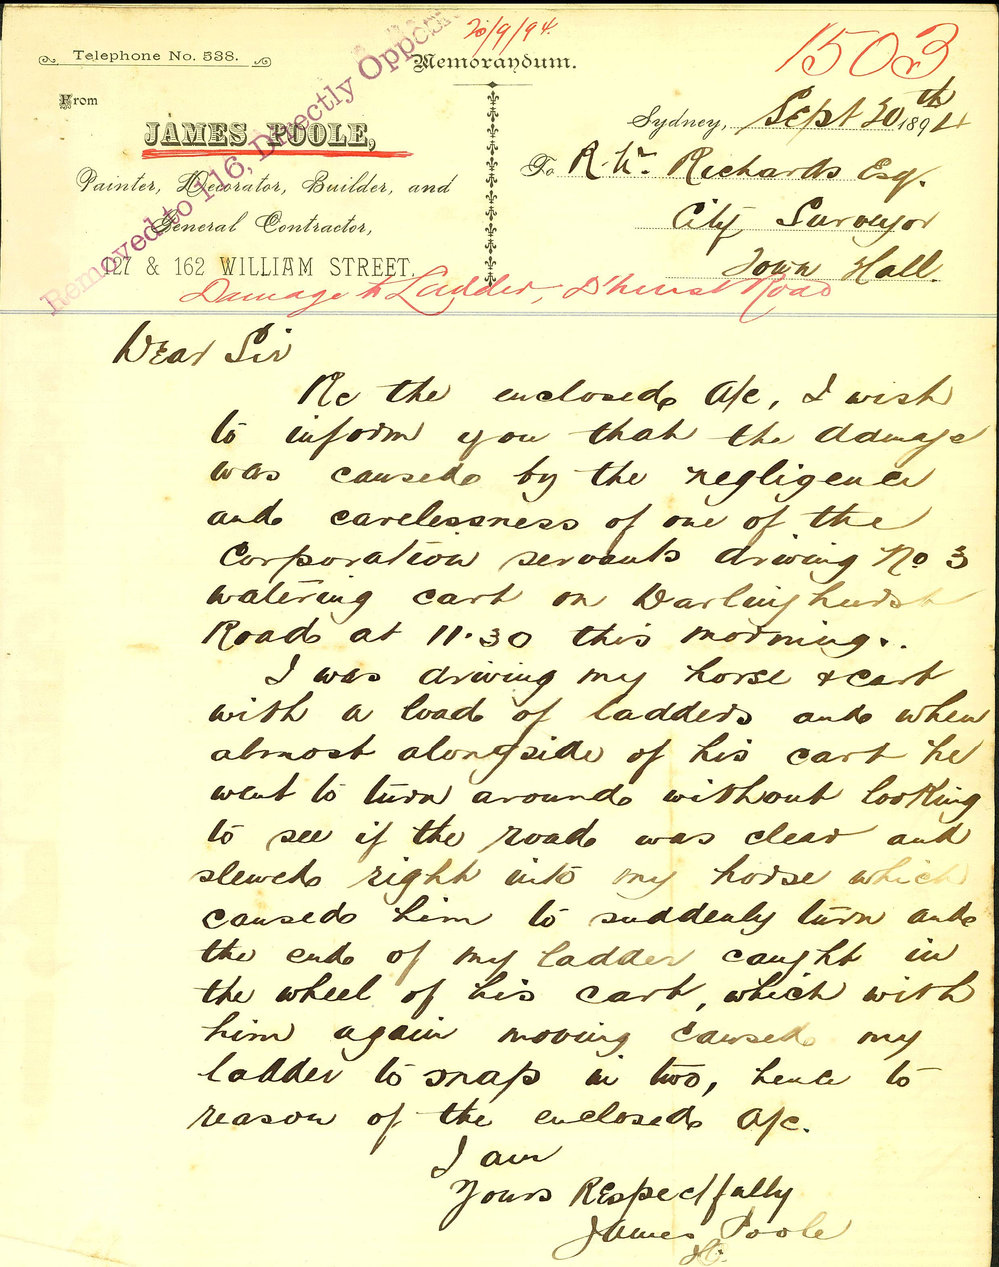 20/9/94.
1503
Telephone No. 538.
Memorandum.
From
JAMES POOLE,
Painter, Decorator, Builder, and
General Contractor,
127 & 162 WILLIAM STREET.
Removed to 116, Directly Opposite
Sydney, Sept 20th 1894
To R. W. Richards Esq.
City Surveyor
Town Hall.
Damage to Ladder, D'hurst Road
Dear Sir
Re the enclosed a/c, I wish
to inform you that the damage
was caused by the negligence
and carelessness of one of the
Corporation servants driving No 3
watering cart on Darlinghurst
Road at 11.30 this morning..
I was driving my horse & cart
with a load of ladders and when
almost alongside of his cart he
went to turn around without looking
to see if the road was clear and
slewed right into my horse which
caused him to suddenly turn and
the end of my ladder caught in
the wheel of his cart, which with
him again moving caused my
ladder to snap in two, hence to
reason of the enclosed a/c.
I am
Yours Respectfully
James Poole